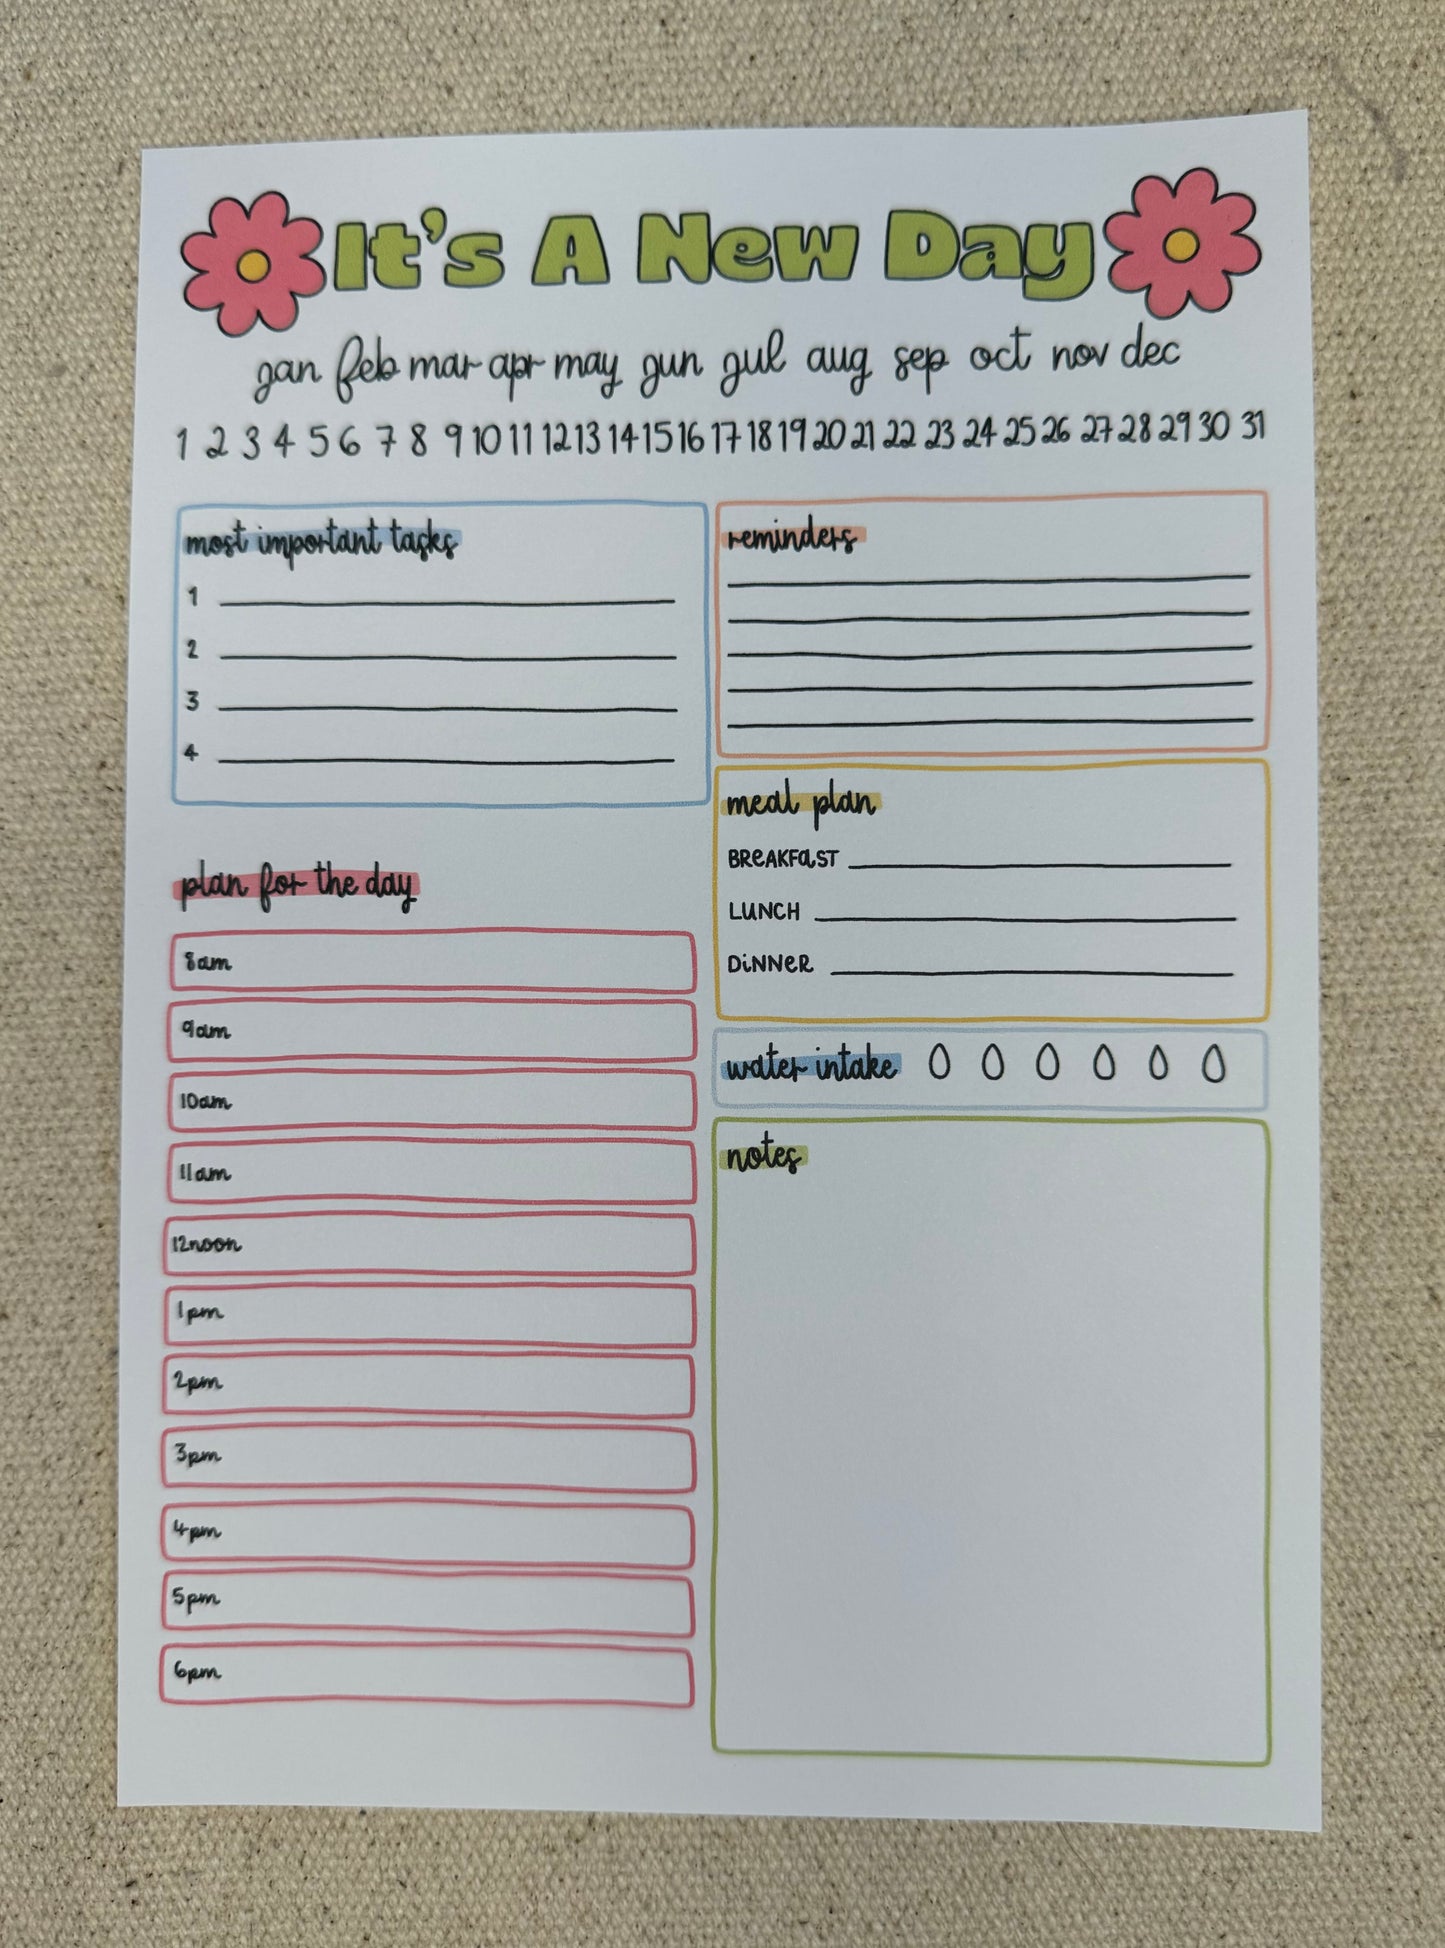 It's A New Day
jan feb mar apr may jun jul aug sep oct nov dec
1 2 3 4 5 6 7 8 9 10 11 12 13 14 15 16 17 18 19 20 21 22 23 24 25 26 27 28 29 30 31
most important tasks
1
2
3
4
plan for the day
8am
9am
10am
11am
12noon
1pm
2pm
3pm
4pm
5pm
6pm
reminders
meal plan
BREAKFAST
LUNCH
DINNER
water intake
notes